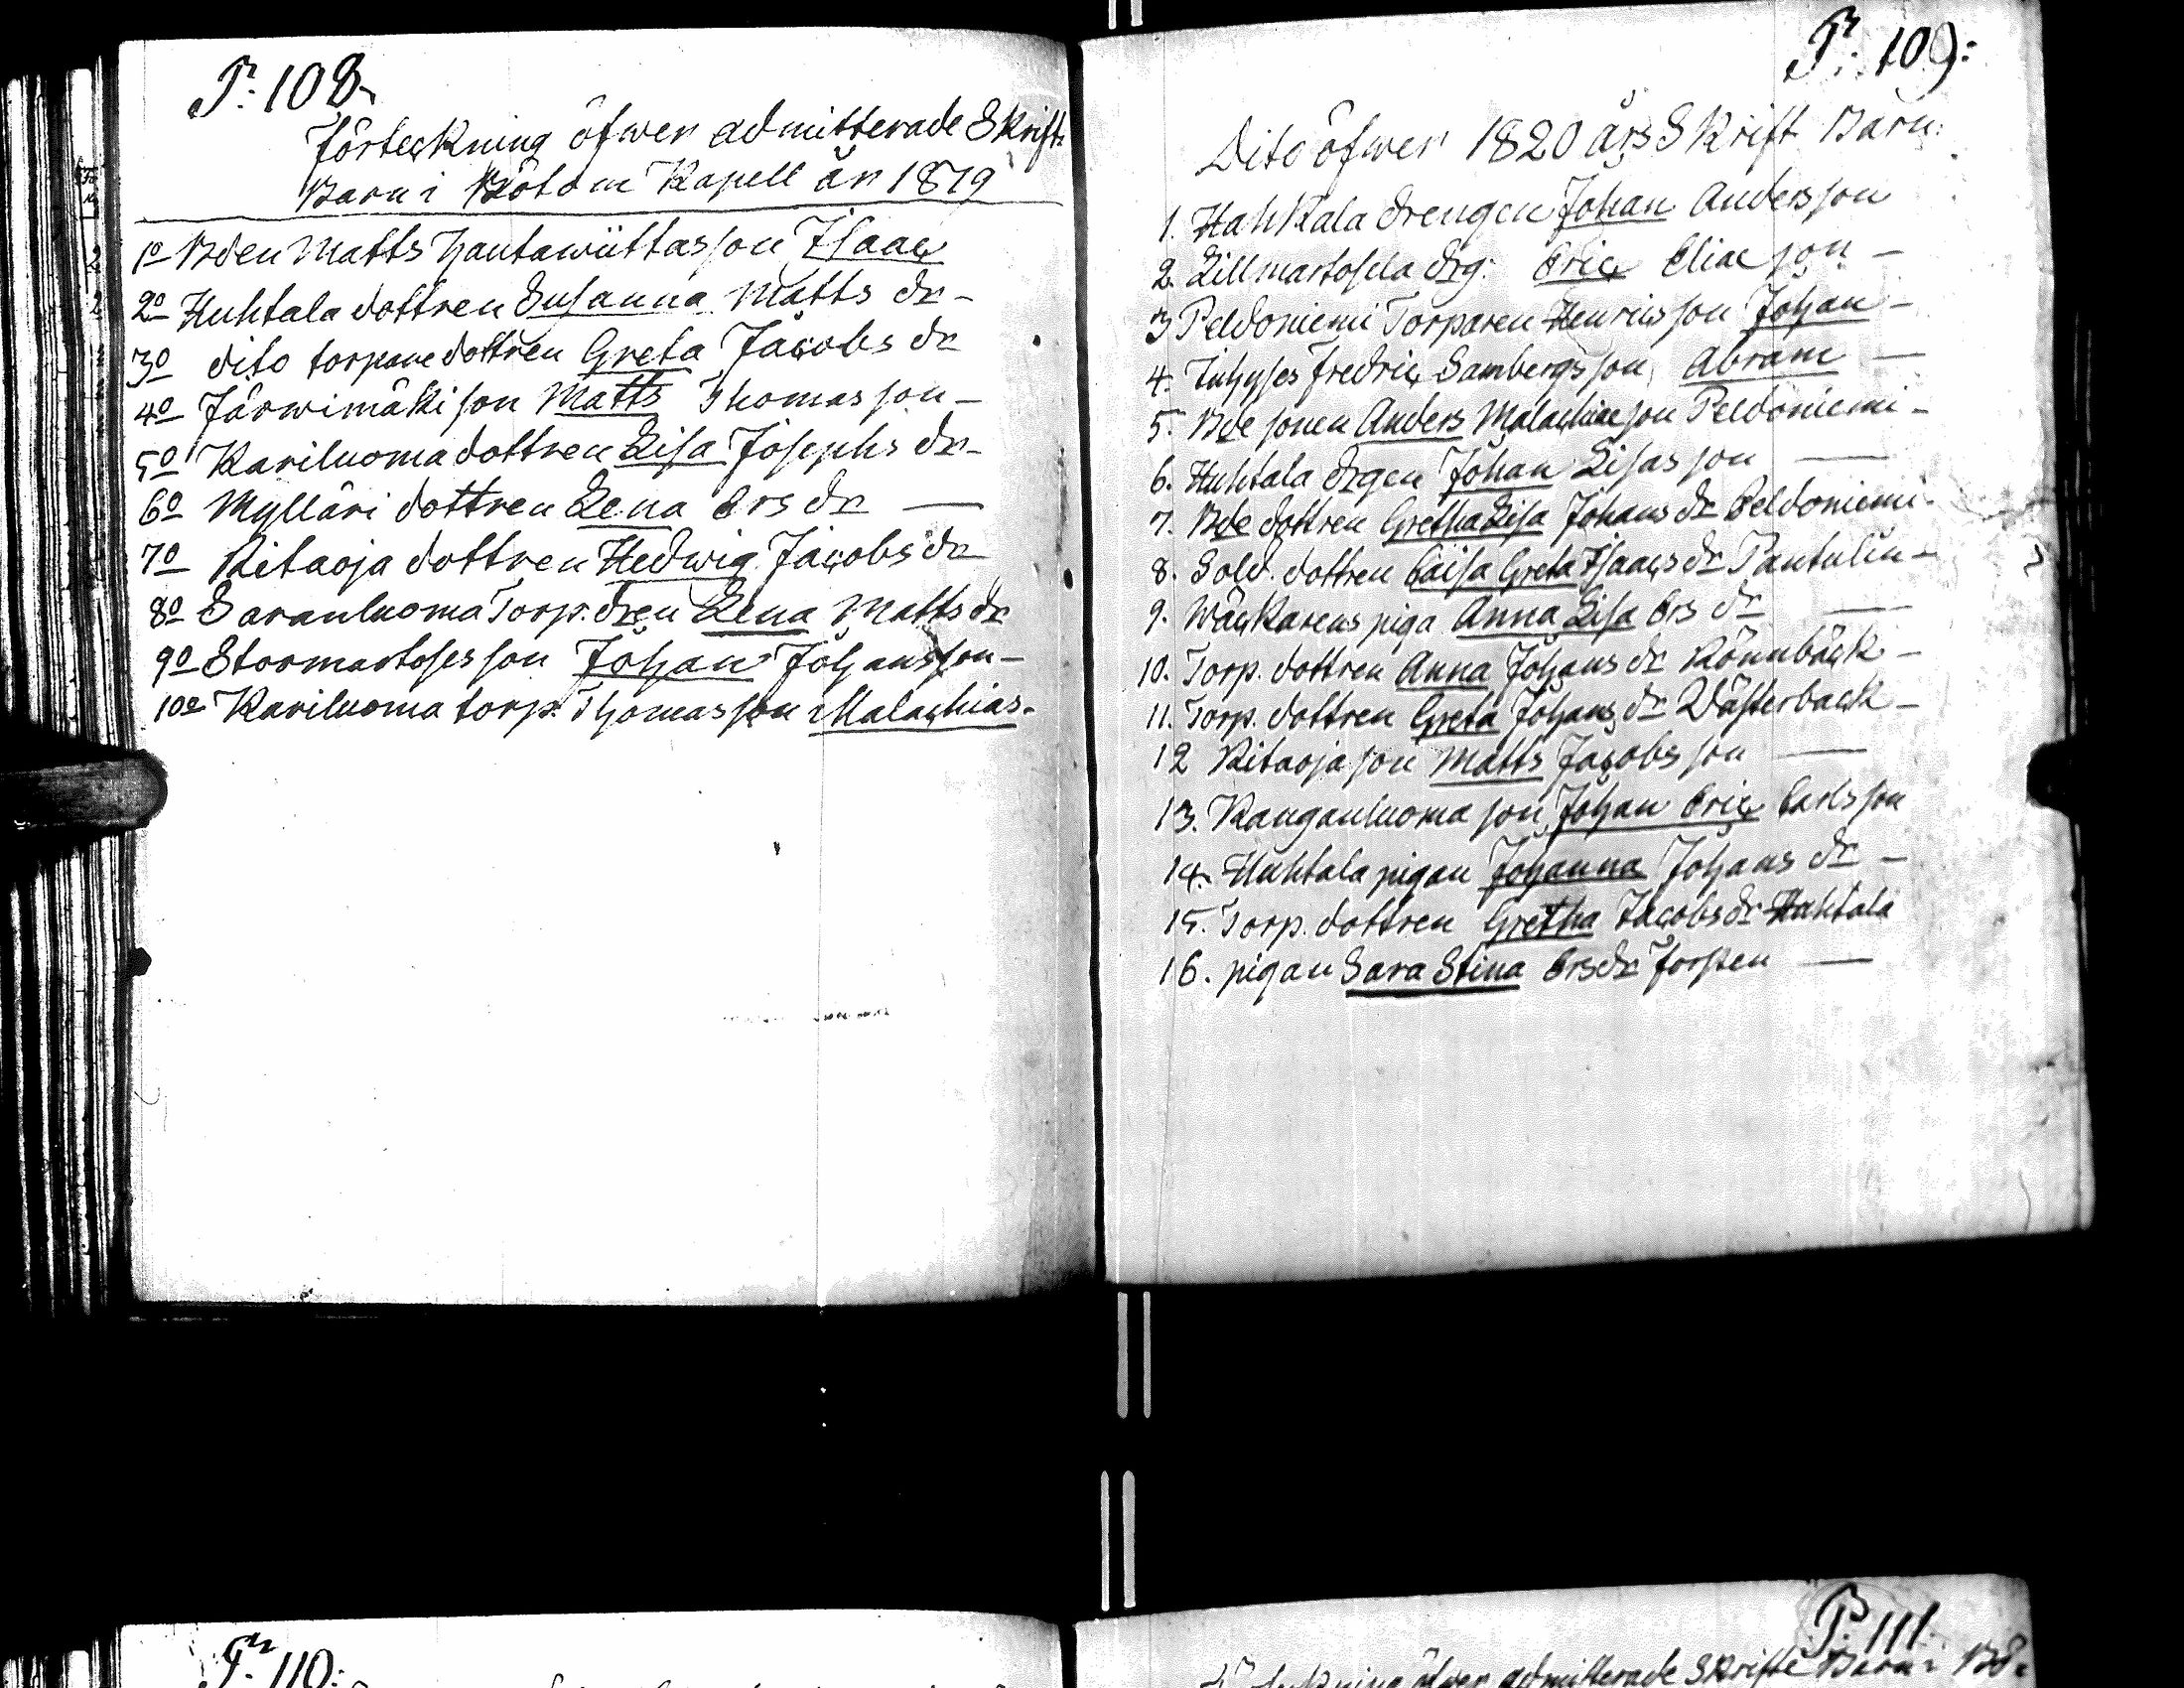 P: 108.
Förteckning öfwer admitterade Skrift
Barn i Bötom Kapell år 1819
1o Bden Matts Hautawiittas son Isaac
2o Huhtala dottren Susanna Matts dr –
3o dito torpare dottren Greta Jacobs dr
4o Järwimäki son Matts Thomas son –
5o Kariluoma dottren Lisa Josephs dr –
6o Mylläri dottren Lena Ers dr —
7o Kitaoja dottren Hedwig Jacobs dr
8o Saranluoma Torp. dren Lena Matts dr
9o Stormartoses son Johan Johansson –
10o Kariluoma torp. Thomas son Malachias.
P: 109:
Dito öfwer 1820 års Skrift Barn:
1. Hahkala drengen Johan Andersson
2. Lillmartosela drg: Eric Eliæ son –
3 Peldoniemi Torparen Henrics son Johan –
4. Fredric Sambergs son Abram —
5. Bde sonen Anders Malachiæ son Peldoniemi –
6. Huhtala drgen Johan Lisas son —
7. Bde dottren Gretha Lisa Johans dr Peldoniemi –
8. Sold. dottren Caisa Greta Isaacs dr Pantulin –
9. Wäckarens piga Anna Lisa Ers dr —
10. Torp. dottren Anna Johans dr Rönnbäck –
11. Torp. dottren Greta Johans dr Wästerback –
12 Kitaoja son Matts Jacobs son —
13. Kanganluoma son Johan Eric Carls son
14. Huhtala pigan Johanna Johans dr –
15. Torp. dottren Gretha Jacobs dr Huhtala
16. pigan Sara Stina Ers dr Forssen —
P: 110:
P. 111.
öfwer admitterade Skrifte Barn i